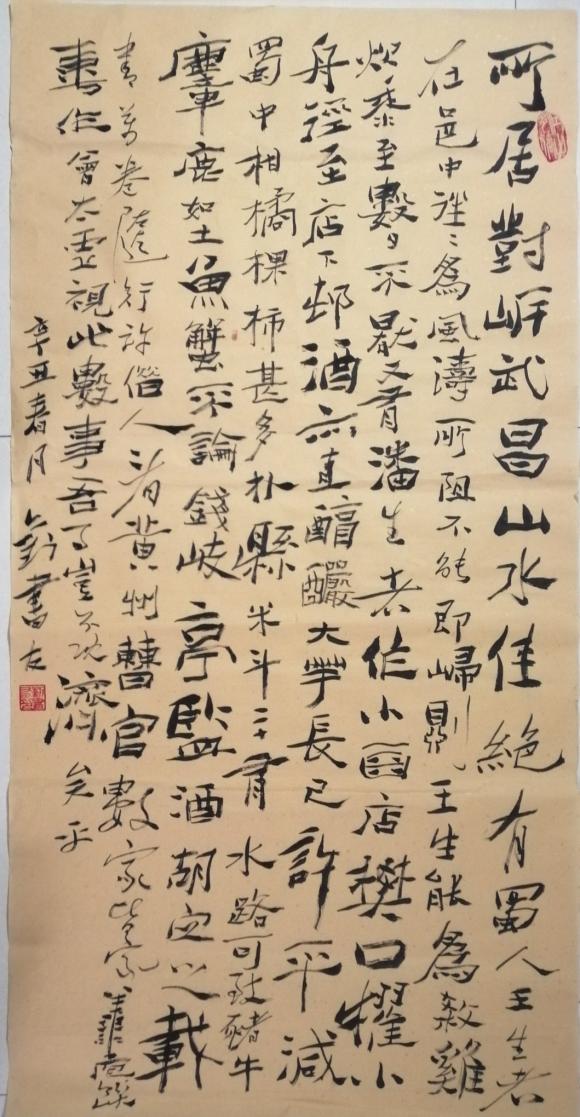 所居對岍武昌山水佳絕有蜀人王生者
在邑中往〻為風濤所阻不能即歸則王生能為殺雞
炊黍至數日不厭又有潘生者作小店樊口櫂小
舟徑至店下邨酒亦直醇釅大芋長尺許不減
蜀中柑橘椑柿甚多外縣米斗二十有水路可致豬牛
麞鹿如土魚蟹不論錢岐亭監酒胡定之載
書萬卷隨行許借人看黃州曹官數家皆善庖饌
喜作會太虛視此數事吾事豈不既濟矣乎
辛丑春月書